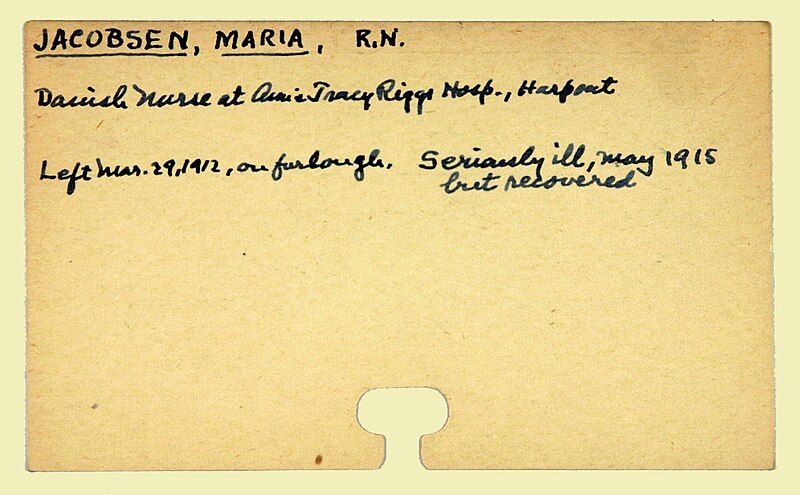 JACOBSEN, MARIA, R.N.
Danish Nurse at Annie Tracy Riggs Hosp., Harpoot
Left Mar. 29, 1912, on furlough. Seriously ill, May 1915
but recovered